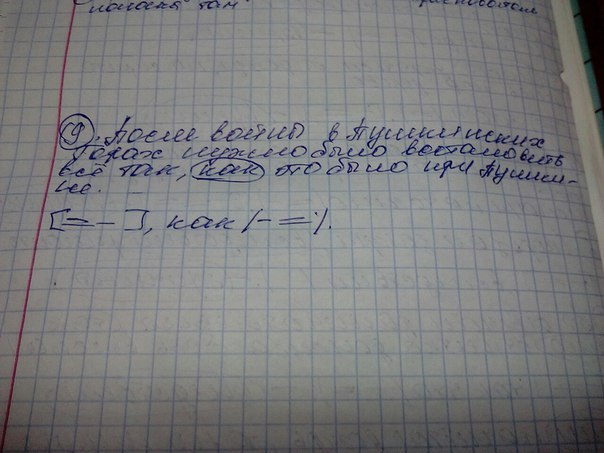 полосы там
9. После войны в Пушкинских
Горах нужно было востановить
всё так, как это было при Пушки-
не.
[= –], как (– =).